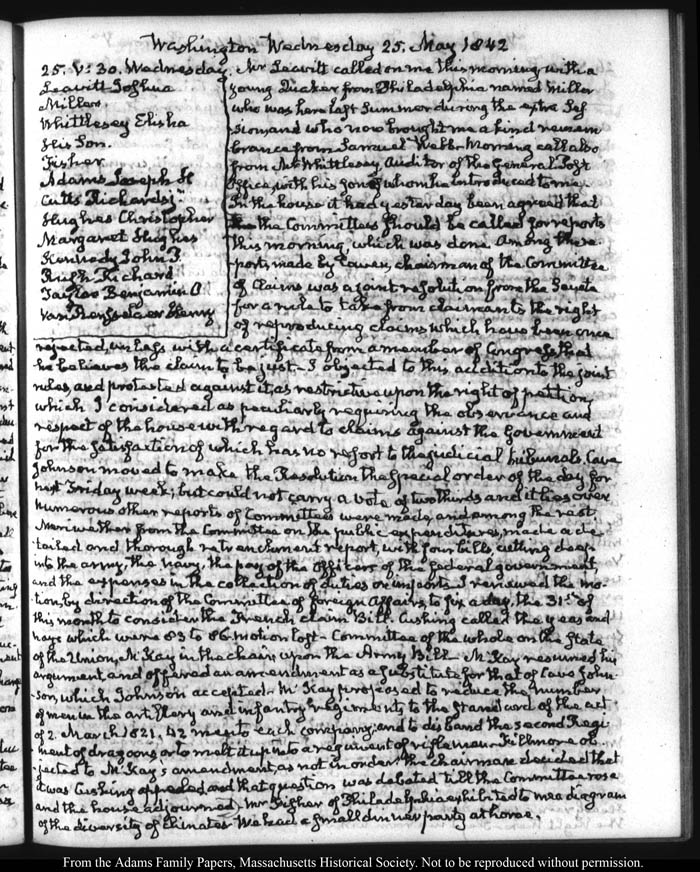 Washington Wednesday 25. May 1842
25. V: 30. Wednesday.
Leavitt Joshua
Miller
Whittlesey Elisha
His Son.
Fisher
Adams Joseph H
Cutts Richard
Hughes Christopher
Margaret Hughes
Kennedy John P.
Rush Richard
Tayloe Benjamin O.
Van Rensselaer Henry
Mr Leavitt called on me this morning with a
young Quaker from Philadelphia named Miller
who was here last Summer during the extra Ses
sion and who now brought me a kind remem
brance from Samuel Webb. Morning call also
from Mr Whittlesey Auditor of the General Post
Office, with his son, whom he introduced to me.
In the house it had yesterday been agreed that
the Committees should be called for reports
this morning, which was done. Among the re-
ports, made by Cowen, chairman of the Committee
of Claims was a joint resolution from the Senate
for a rule to take from claimants the right
of reproducing claims which have been once
rejected, unless with a certificate from a member of Congress that
he believes the claim to be just. I objected to this addition to the joint
rules, and protested against it, as restrictive upon the right of petition,
which I considered as peculiarly requiring the observance and
respect of the house with regard to claims against the Government
for the satisfaction of which has no resort to the judicial tribunals. Cave
Johnson moved to make the Resolution the special order of the day for
next Friday week; but could not carry a vote of two thirds and it lies over
Numerous other reports of Committees were made, and among the rest
Meriwether from the Committee on the public expenditures, made a de
tailed and thorough retrenchment report, with four bills, cutting deep
into the army, the navy, the pay of the Officers of the federal government,
and the expenses in the collection of duties on imports. I renewed the mo-
tion, by direction of the Committee of foreign Affairs to fix a day, the 31.st of
this month to consider the French claim Bill. Cushing called the yeas and
nays which were 63 to 86. motion lost. Committee of the whole on the State
of the Union, McKay in the chair, upon the Army Bill. McKay resumed his
argument, and offered an amendment as a substitute for that of Cave John-
son, which Johnson accepted. McKay proposed to reduce the number
of men in the artillery and infantry regiments to the standard of the act
of 2. March 1821. 42 men to each company; and to disband the second Regi-
ment of dragoons or to melt it up into a regiment of riflemen. Fillmore ob-
jected to McKay's amendment, as not in order. the chairman decided that
it was. Cushing appealed, and that question was debated till the Committee rose
and the house adjourned. Mr Fisher of Philadelphia exhibited to me a diagram
of the diversity of Climates. We had a small dinner party at home.
From the Adams Family Papers, Massachusetts Historical Society. Not to be reproduced without permission.